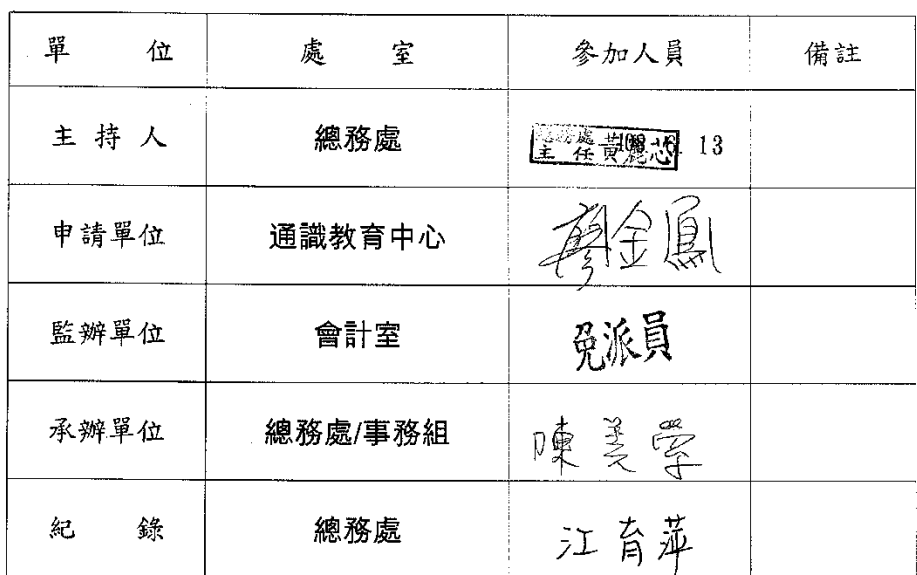 單 位 處 室 參加人員 備註
主持人 總務處 總務處 主任黃麗芯 13
申請單位 通識教育中心 廖金鳳
監辦單位 會計室 免派員
承辦單位 總務處/事務組 陳美雪
紀 錄 總務處 江育萍